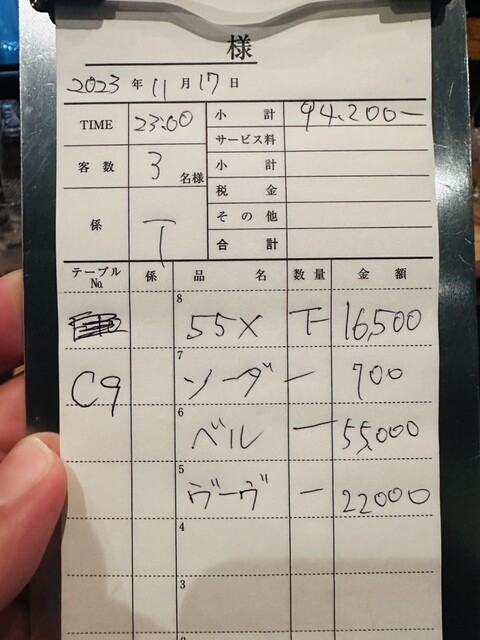 様
2023 年 11 月 17 日
TIME 23:00 小計 94,200-
サービス料
客数 3 名様 小計
税金
係 T その他
合計
テーブルNo. 係 品名 数量 金額
8 55X 下 16,500
C9 7 ソーダ 一 700
6 ベル 一 55,000
5 ヴーヴ 一 22000
4
3